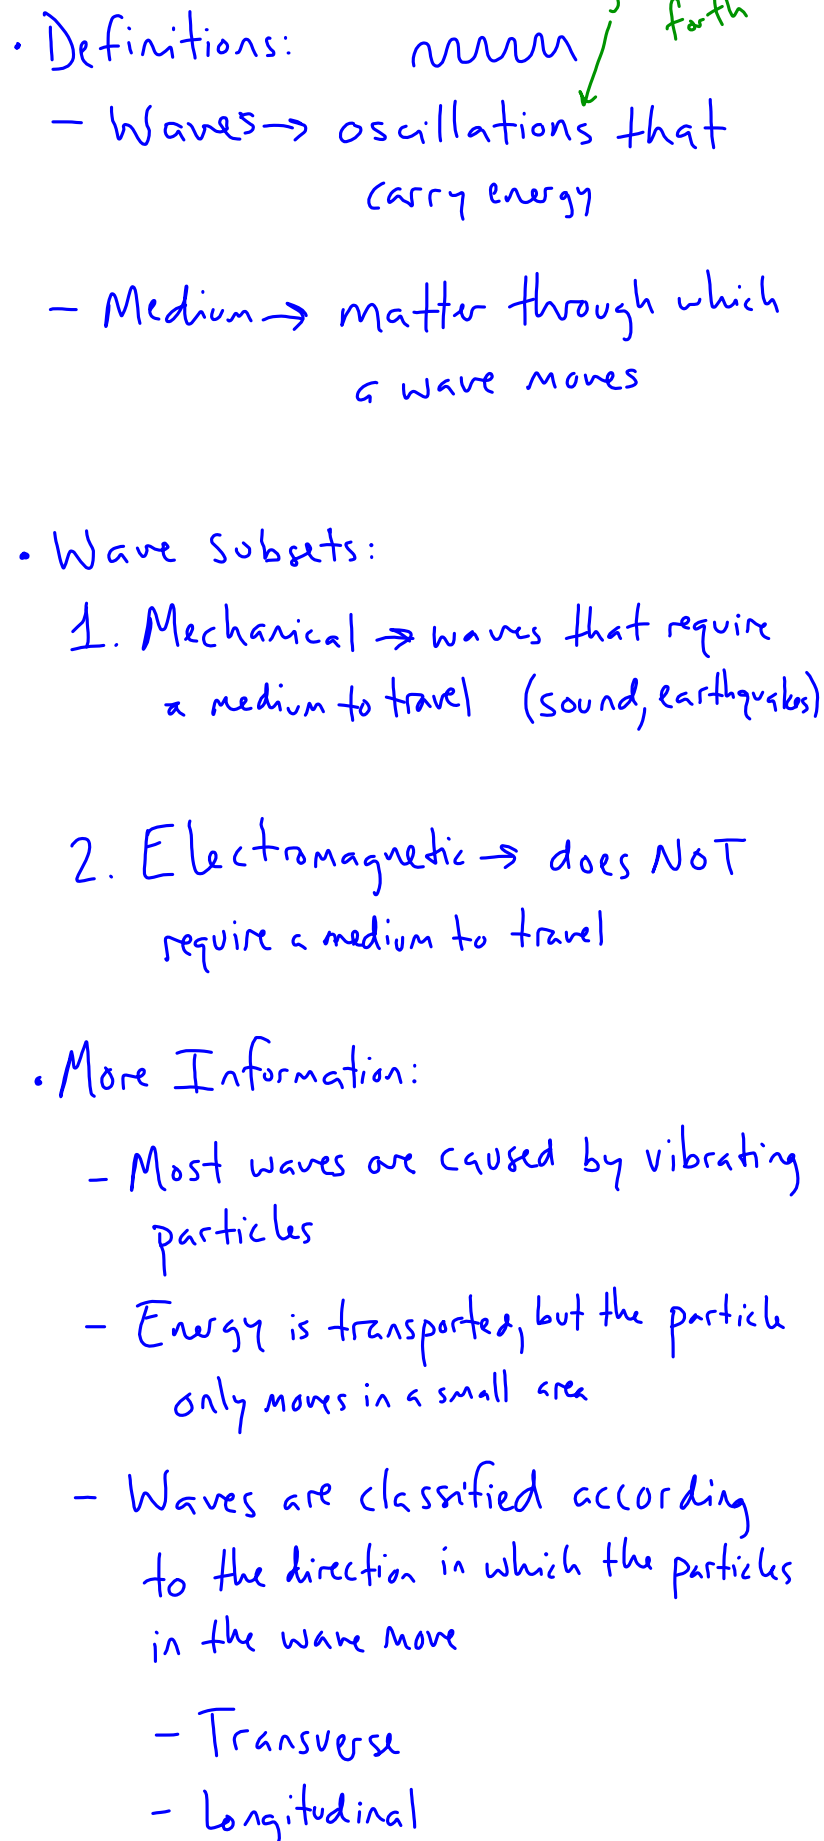 forth
• Definitions:
- Waves → oscillations that
carry energy
- Medium → matter through which
a wave moves
• Wave Subsets:
1. Mechanical → waves that require
a medium to travel (sound, earthquakes)
2. Electromagnetic → does NOT
require a medium to travel
• More Information:
- Most waves are caused by vibrating
particles
- Energy is transported, but the particle
only moves in a small area
- Waves are classified according
to the direction in which the particles
in the wave move
- Transverse
- Longitudinal